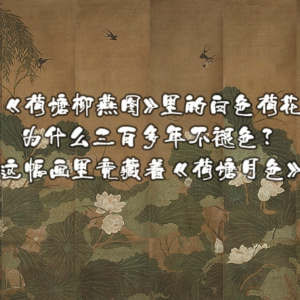 《荷塘柳燕图》里的白色荷花
为什么三百多年不褪色？
这幅画里竟藏着《荷塘月色》